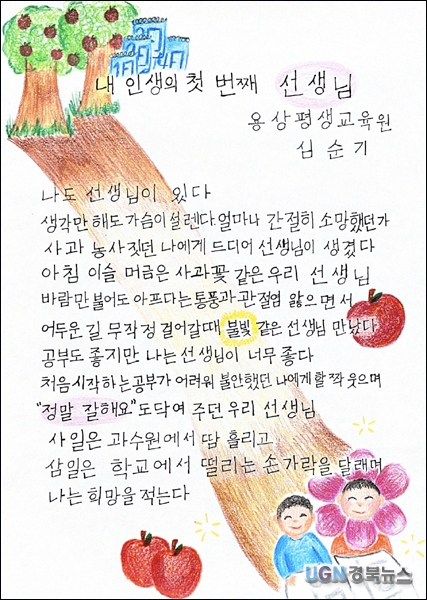 내 인생의 첫 번째 선생님
용상평생교육원
심순기
나도 선생님이 있다
생각만 해도 가슴이 설렌다 얼마나 간절히 소망했던가
사과 농사 짓던 나에게 드디어 선생님이 생겼다
아침 이슬 머금은 사과꽃 같은 우리 선생님
바람만 불어도 아프다는 통풍과 관절염 앓으면서
어두운 길 무작정 걸어갈때 불빛 같은 선생님 만났다
공부도 좋지만 나는 선생님이 너무 좋다
처음 시작하는 공부가 어려워 불안했던 나에게 활짝 웃으며
"정말 잘해요" 도닥여 주던 우리 선생님
사일은 과수원에서 땀 흘리고
삼일은 학교에서 떨리는 손가락을 달래며
나는 희망을 적는다
UGN경북뉴스